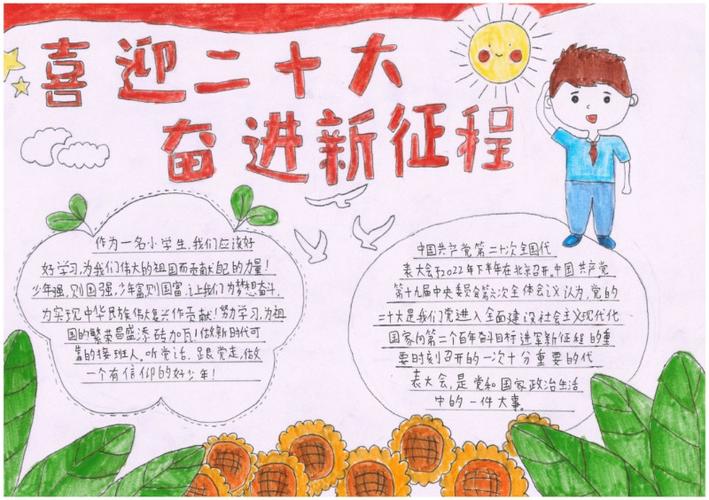 喜迎二十大
奋进新征程
作为一名小学生,我们应该好
好学习,为我们伟大的祖国而贡献自己的力量!
少年强,则国强,少年富则国富,让我们为梦想奋斗,
为实现中华民族伟大复兴作贡献!努力学习,为祖
国的繁荣昌盛添砖加瓦!做新时代可
靠的接班人,听党话,跟党走,做
一个有信仰的好少年!
中国共产党第二十次全国代
表大会于2022年下半年在北京召开,中国共产党
第十九届中央委员会第六次全体会议认为,党的
二十大是我们党进入全面建设社会主义现代化
国家向第二个百年奋斗目标进军新征程的重
要时刻召开的一次十分重要的代
表大会,是党和国家政治生活
中的一件大事。